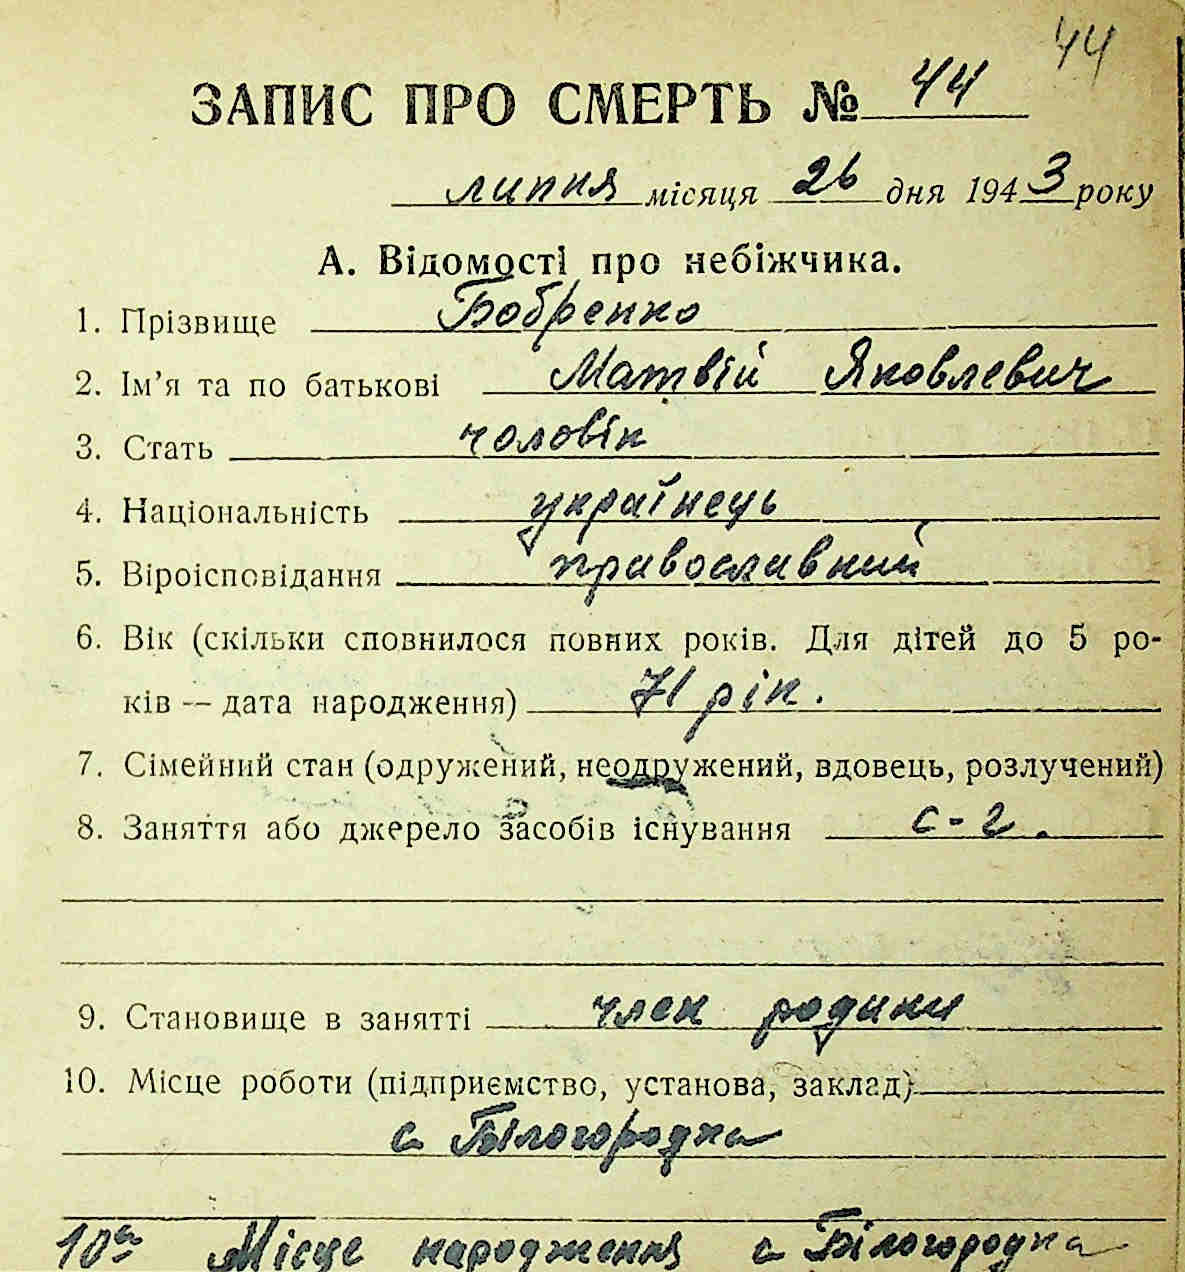 44
ЗАПИС ПРО СМЕРТЬ № 44
липня місяця 26 дня 1943 року
А. Відомості про небіжчика.
1. Прізвище Бобренко
2. Ім'я та по батькові Матвій Яковлевич
3. Стать чоловік
4. Національність українець
5. Віроісповідання православний
6. Вік (скільки сповнилося повних років. Для дітей до 5 ро-
ків — дата народження) 71 рік.
7. Сімейний стан (одружений, неодружений, вдовець, розлучений)
8. Заняття або джерело засобів існування с-г.
9. Становище в занятті член родини
10. Місце роботи (підприємство, установа, заклад)
с Білогородка
10а Місце народження с Білогородка